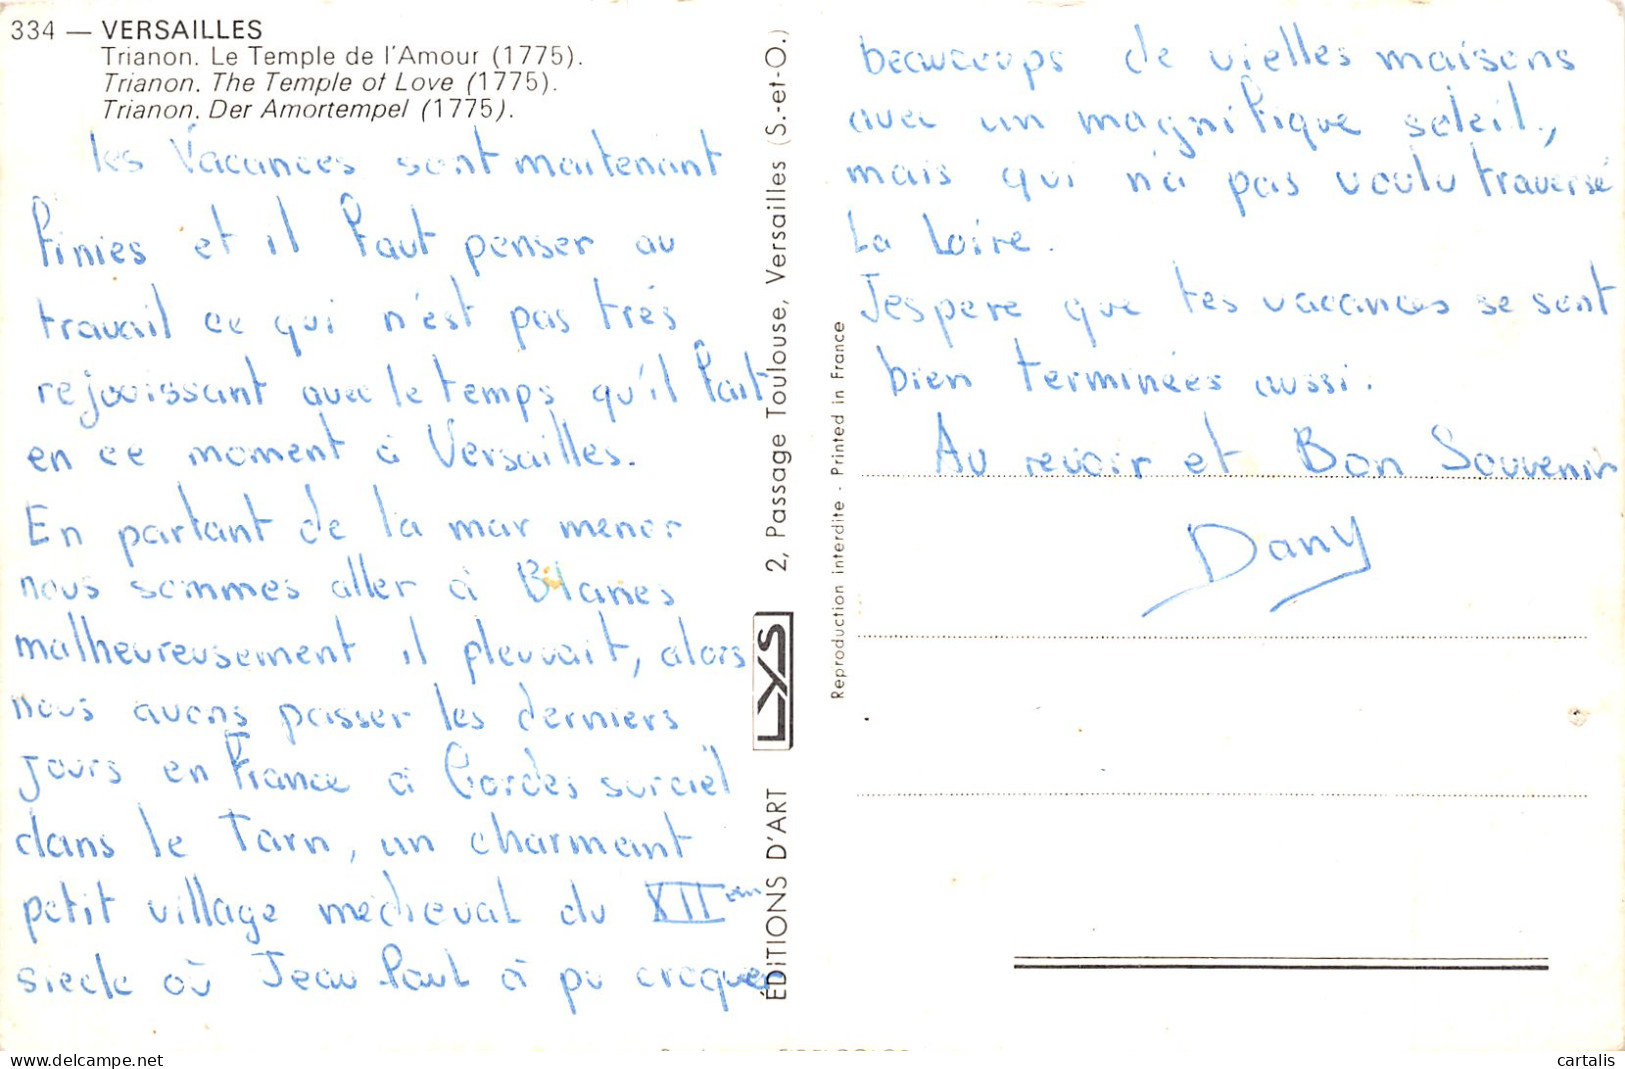 334 — VERSAILLES
Trianon. Le Temple de l'Amour (1775).
Trianon. The Temple of Love (1775).
Trianon. Der Amortempel (1775).
les Vacances sont maitenant
finies et il faut penser au
travail ce qui n'est pas très
rejouissant avec le temps qu'il fait
en ce moment à Versailles.
En partant de la mar menor
nous sommes aller à Blanes
malheureusement il pleuvait, alors
nous avons passer les derniers
jours en France à Cordes sur ciel
dans le Tarn, un charmant
petit village medieval du XIIem
siecle où Jean Paul à pu croquer
ÉDITIONS D'ART LYS 2, Passage Toulouse, Versailles (S.-et-O.)
Reproduction interdite - Printed in France
beaucoups de vielles maisons
avec un magnifique soleil,
mais qui n'a pas voulu traversé
la Loire.
J'espere que tes vacances se sont
bien terminées aussi.
Au revoir et Bon Souvenir
Dany
www.delcampe.net
cartalis